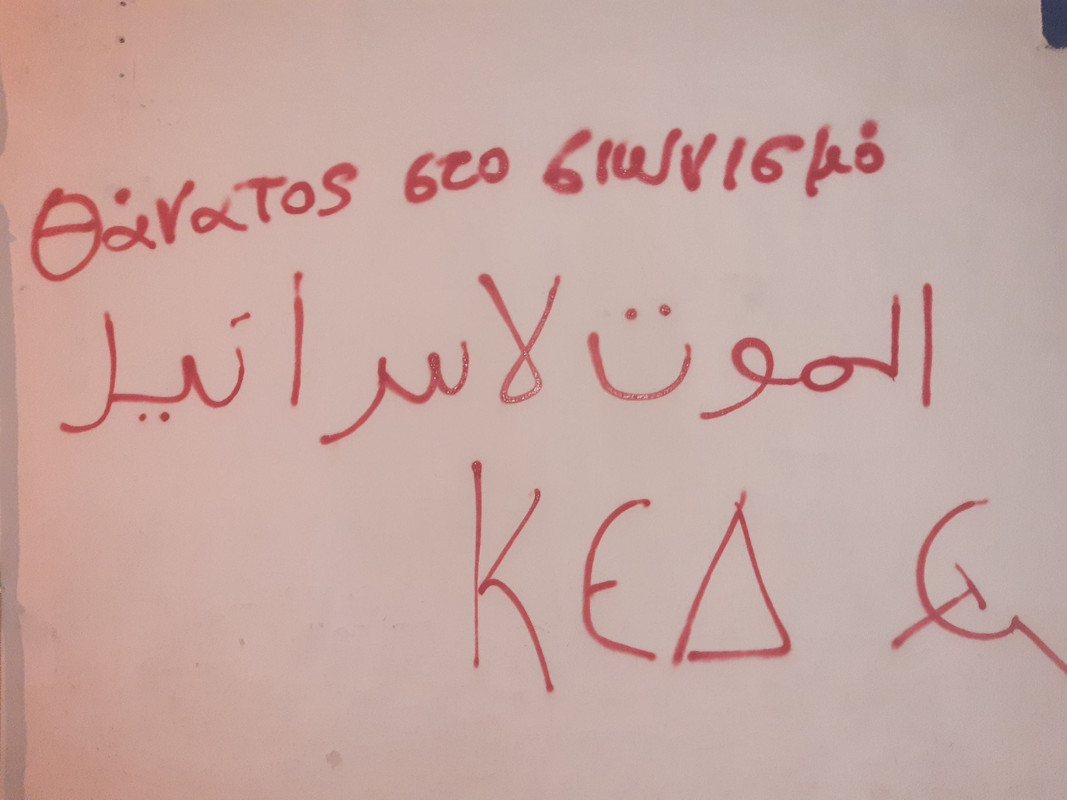 Θάνατος στο σιωνισμό
الموت لاسرائيل
ΚΕΔ